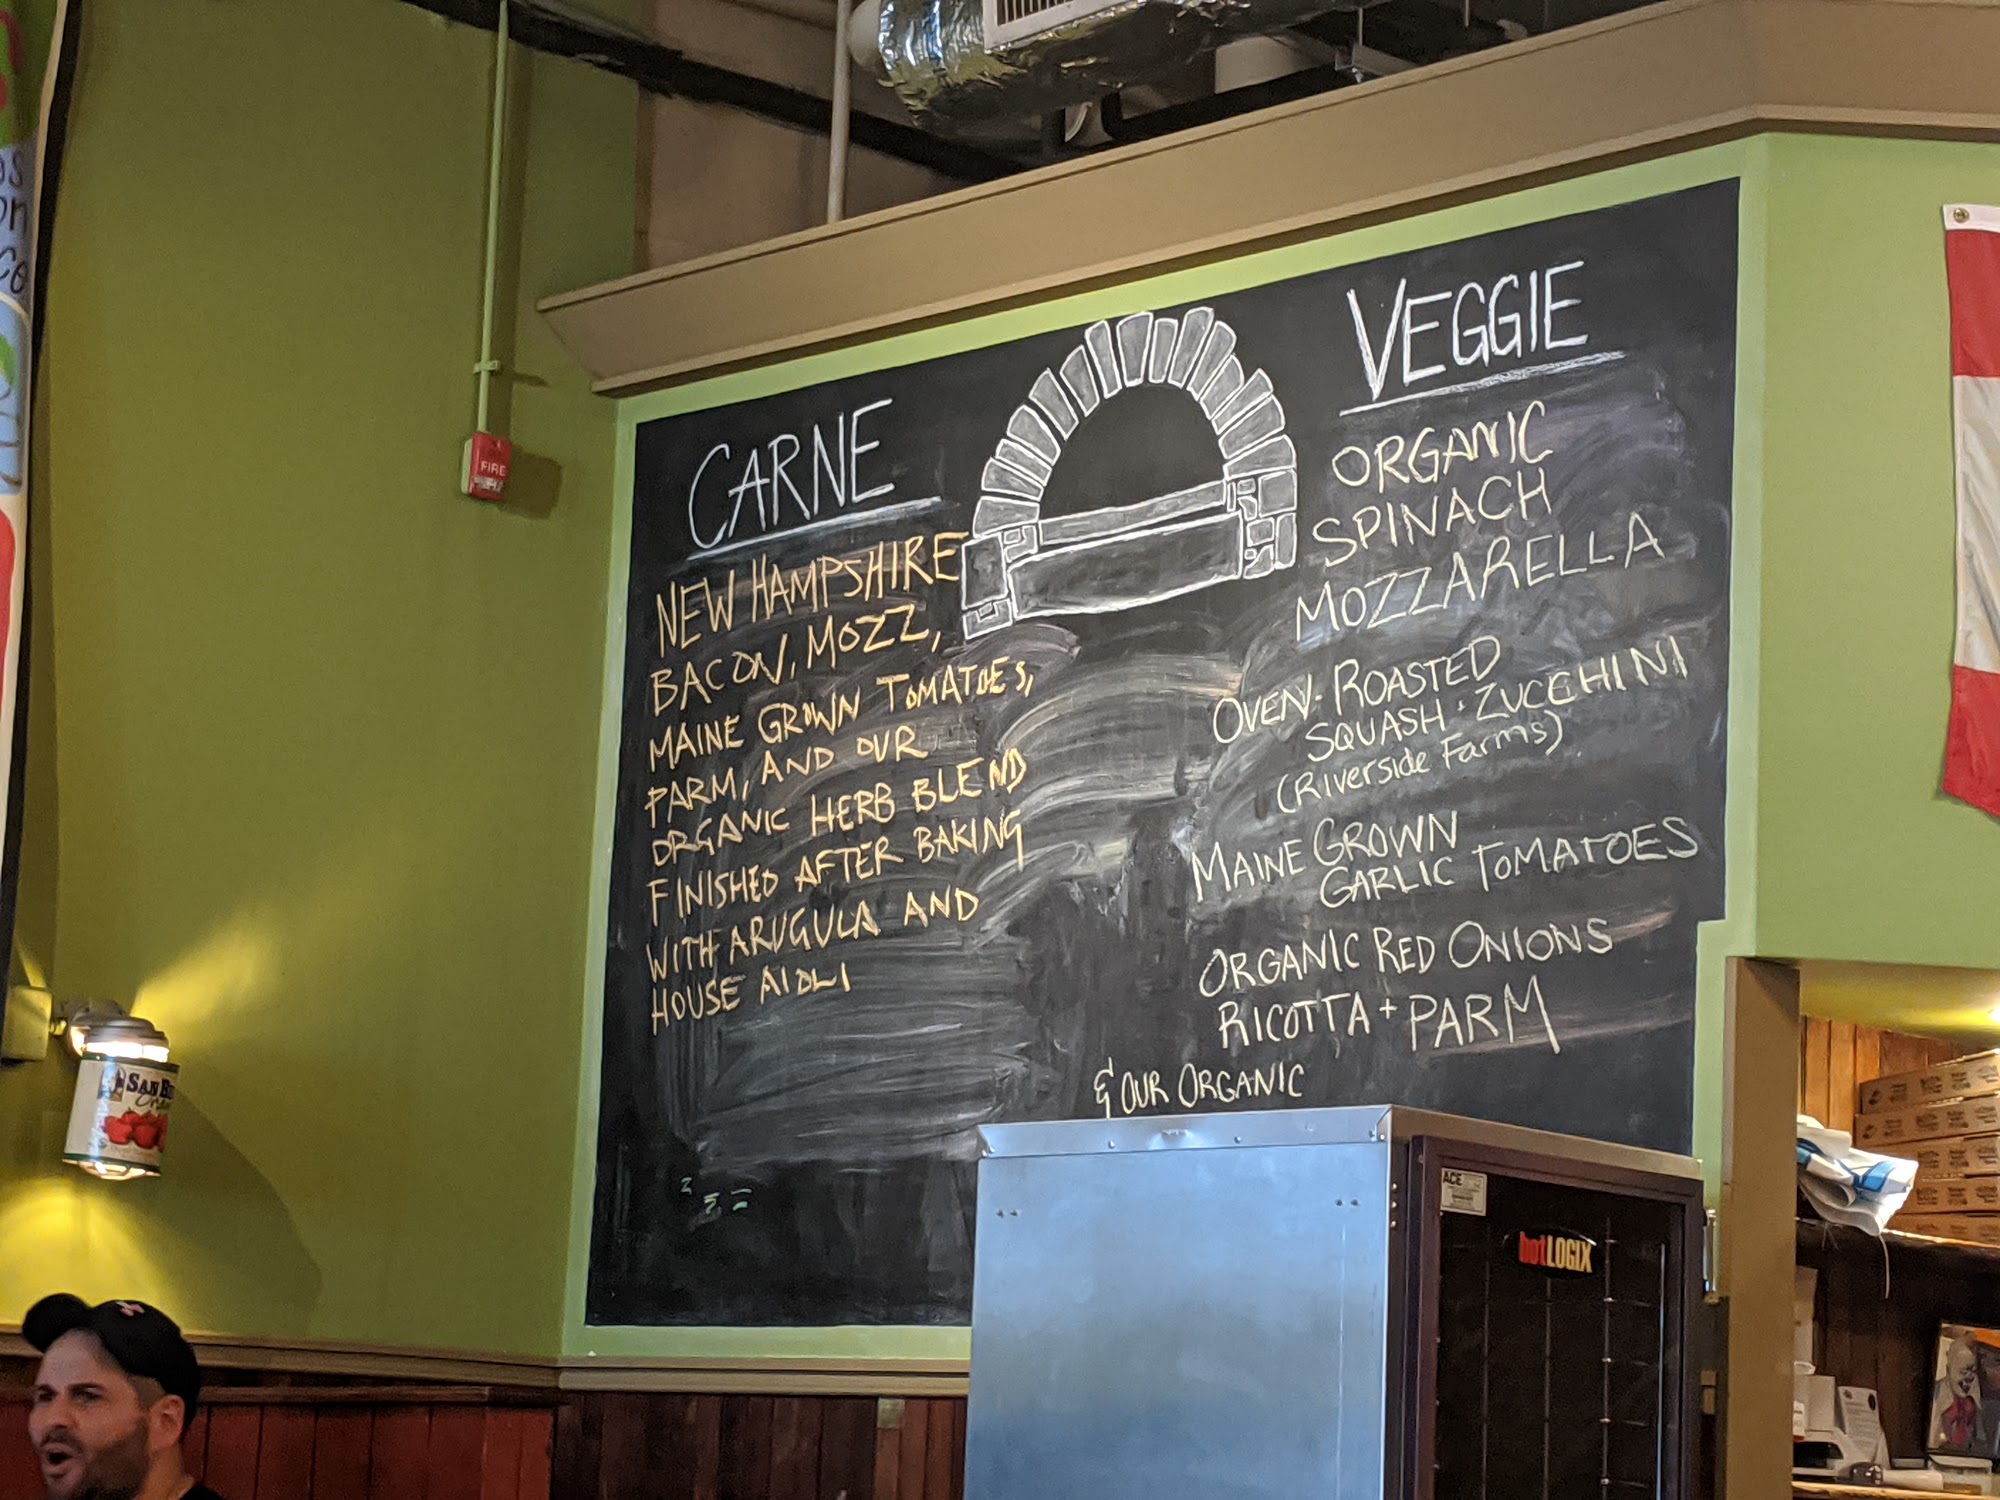 CARNE
NEW HAMPSHIRE
BACON, MOZZ,
MAINE GROWN TOMATOES,
PARM, AND OUR
ORGANIC HERB BLEND
FINISHED AFTER BAKING
WITH ARUGULA AND
HOUSE AIOLI
VEGGIE
ORGANIC
SPINACH
MOZZARELLA
OVEN-ROASTED
SQUASH · ZUCCHINI
(Riverside Farms)
MAINE GROWN
GARLIC TOMATOES
ORGANIC RED ONIONS
RICOTTA + PARM
& OUR ORGANIC
FIRE
SAN
ACE
hotLOGIX